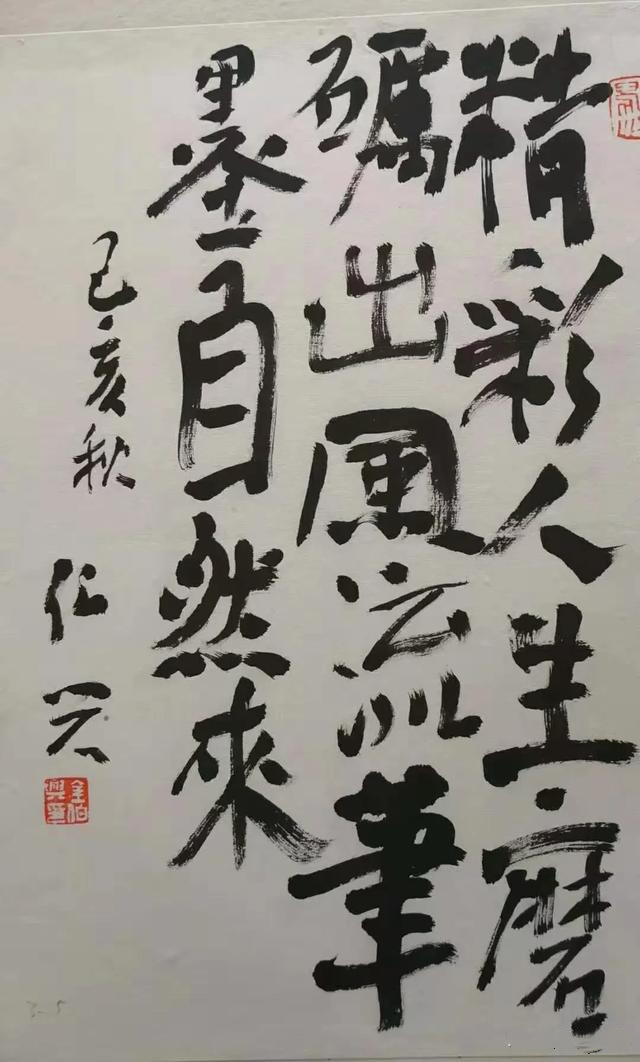 精彩人生磨
礪出風流筆
墨自然來
己亥秋
仁
3-5